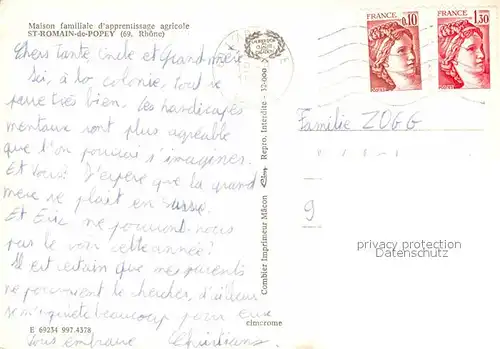 Maison familiale d'apprentissage agricole
ST-ROMAIN-de-POPEY (69. Rhône)
Chers Tante, Oncle et Grand-mère
Ici, à la colonie, tout se
passe très bien. Les handicapés
mentaux sont plus agréable
que l'on pouvait s'imaginer.
Et vous? J'espère que la grand
mère se plaît en Suisse.
Et Eric ne pouvons-nous
pas le voir cette année?
Il est certain que mes parents
ne pourraient le chercher, d'ailleurs
je m'inquiète beaucoup pour eux
vous embrasse Christiane
E 69234 997.4378
cimcrome
Combier Imprimeur Mâcon Cim Repro. Interdite - 37-000
FRANCE
0,10
FRANCE
1,30
Famille ZOGG
9
privacy protection
Datenschutz